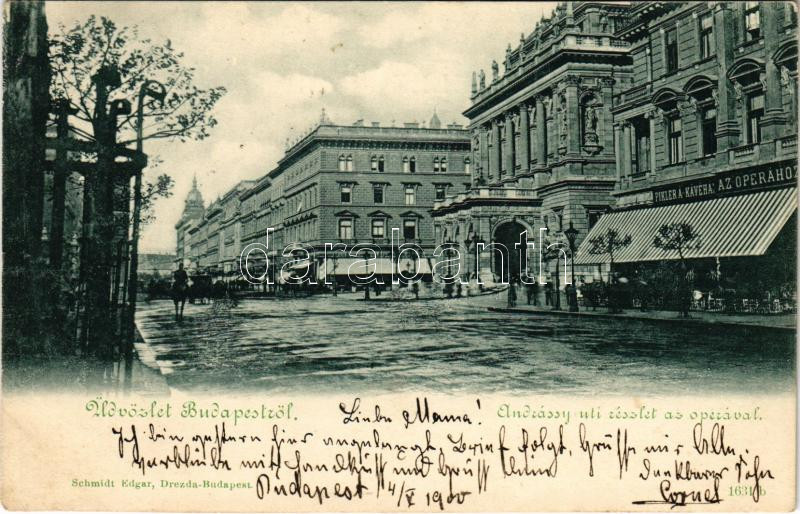 PIKLER A. KÁVÉHÁZ AZ OPERÁHOZ
darabanth
Üdvözlet Budapestről.
Andrássy uti részlet az operával.
Liebe Mama!
Ich bin gestern hier angelangt, Brief folgt, Grüsse mir Alle,
verbleibe mit Handkuss und Gruss Ihnen
dankbarer Sohn
Cornel
Budapest 4/V 1900
Schmidt Edgar, Drezda-Budapest.
1631 b